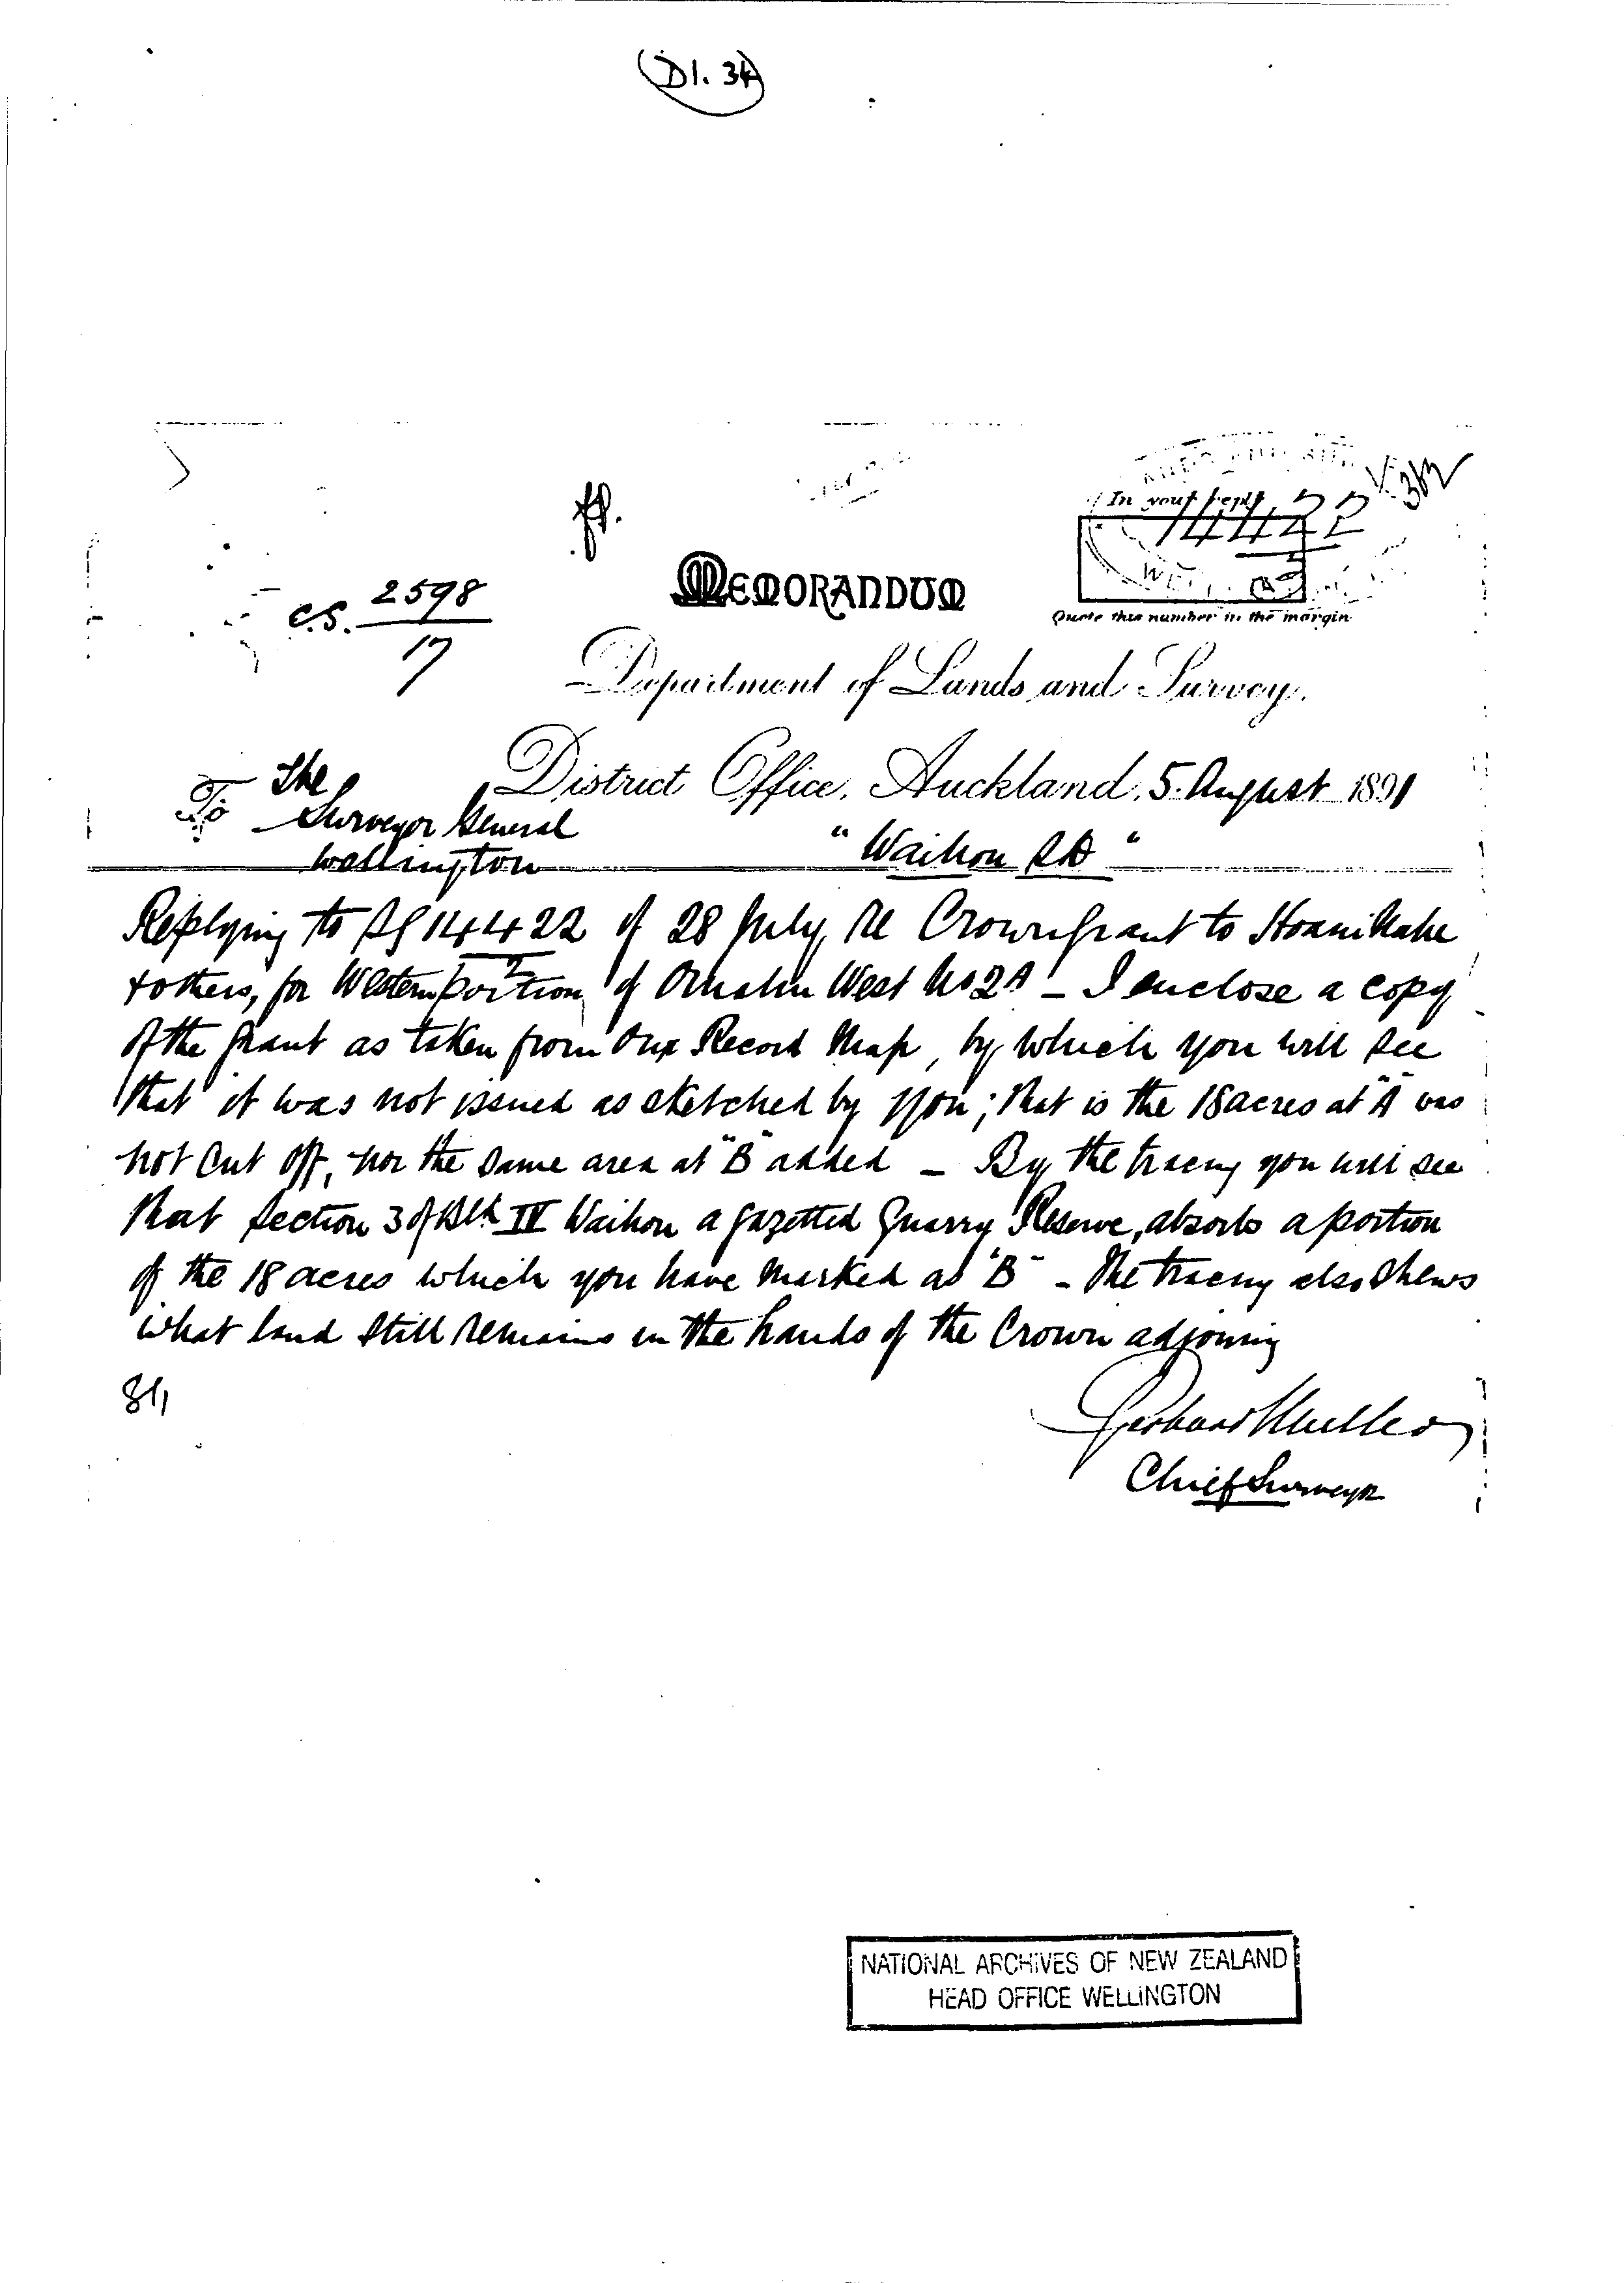 (D1. 34)
In your reply
14422
2
C.S. 2598
17
MEMORANDUM
Quote this number in the margin
Department of Lands and Survey.
District Office, Auckland, 5. August 1891
To The
Surveyor General
Wellington
"Waihou SD"
Replying to SG 14422 of 28 July, re Crown Grant to
2
& others, for Western portion of West No 2A - I enclose a copy
of the Grant as taken from our Record Map, by which you will see
that it was not issued as sketched by you; that is the 18 acres at "A" was
not cut off, nor the same area at "B" added - By the tracing you will see
that Section 3 of Blk IV Waihou a gazetted Quarry Reserve, absorbs a portion
of the 18 acres which you have marked as "B" - The tracing also shews
what land still remains in the hands of the Crown adjoining
Gerhard Mueller
Chief Surveyor
NATIONAL ARCHIVES OF NEW ZEALAND
HEAD OFFICE WELLINGTON